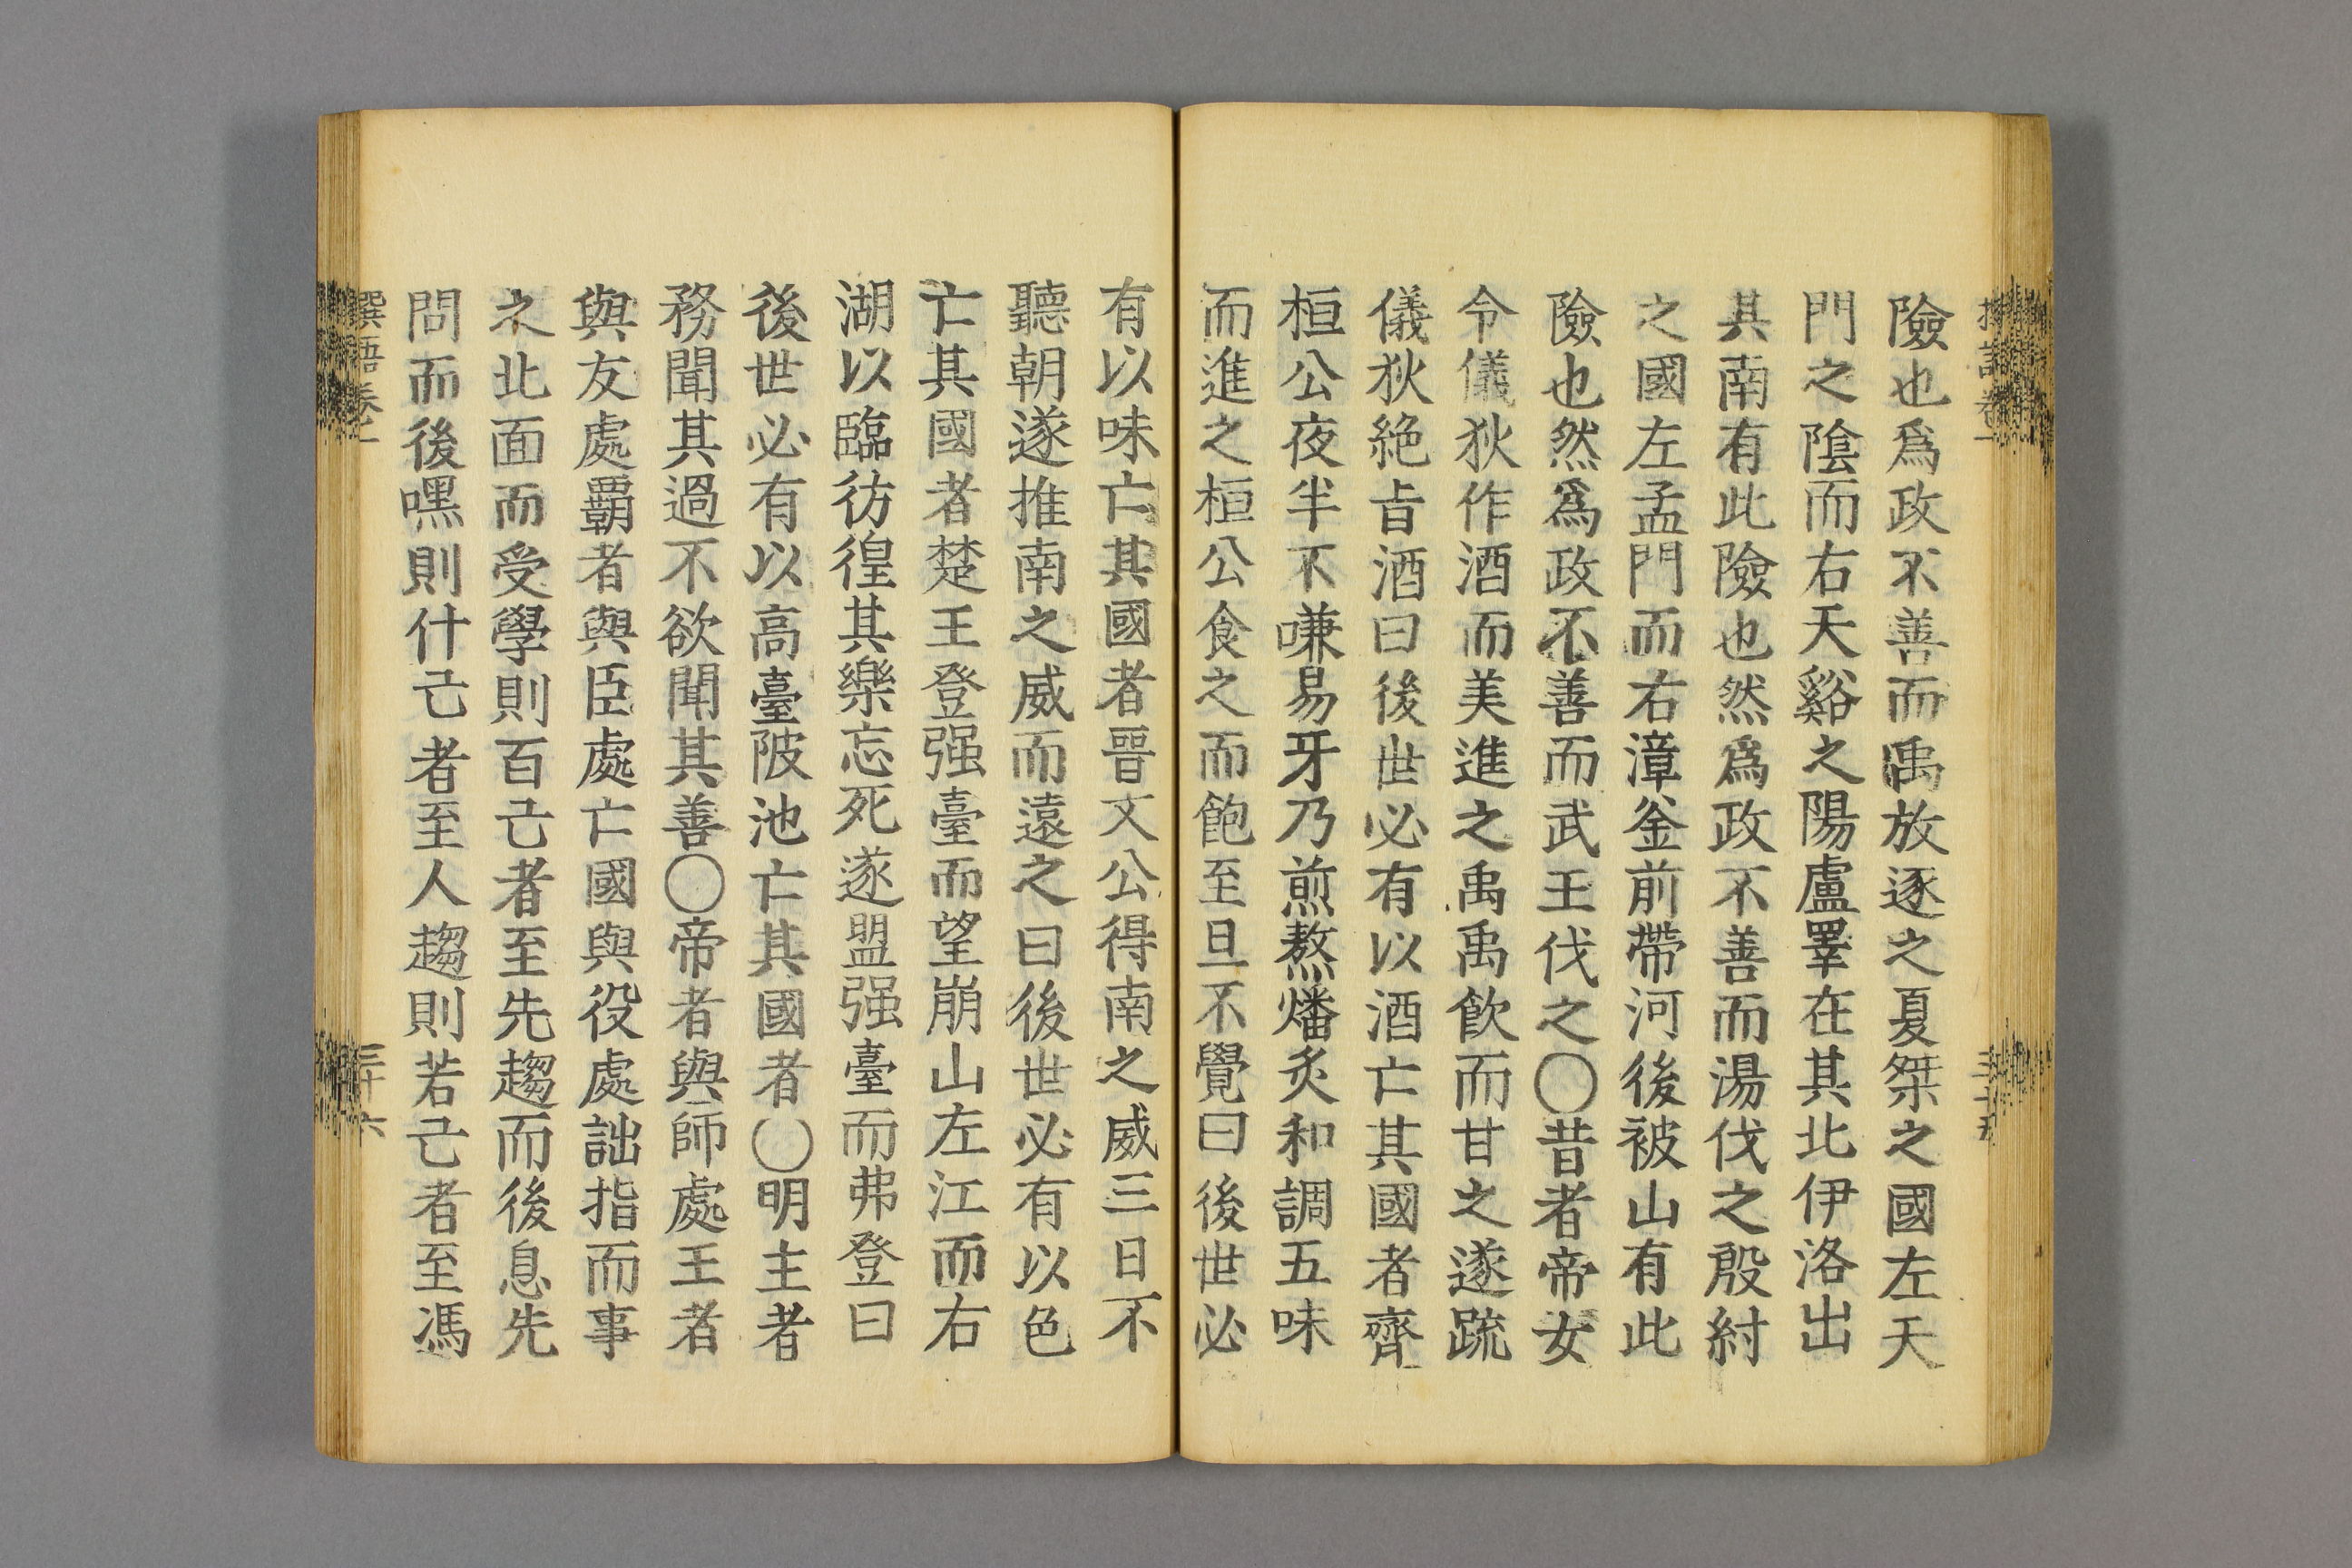 險也爲政不善而禹放逐之夏桀之國左天
門之陰而右天谿之陽盧睪在其北伊洛出
其南有此險也然爲政不善而湯伐之殷紂
之國左孟門而右漳釜前帶河後被山有此
險也然爲政不善而武王伐之〇昔者帝女
令儀狄作酒而美進之禹禹飮而甘之遂疏
儀狄絶㫖酒曰後世必有以酒亡其國者齊
桓公夜半不嗛易牙乃煎熬燔炙和調五味
而進之桓公食之而飽至旦不覺曰後世必
有以味亡其國者晉文公得南之威三日不
聽朝遂推南之威而遠之曰後世必有以色
亡其國者楚王登强臺而望崩山左江而右
湖以臨彷徨其樂忘死遂盟强臺而弗登曰
後世必有以高臺陂池亡其國者〇明主者
務聞其過不欲聞其善〇帝者與師處王者
與友處覇者與臣處亡國與役處詘指而事
之北面而受學則百己者至先趨而後息先
問而後嘿則什己者至人趨則若己者至馮
語卷一
三十六